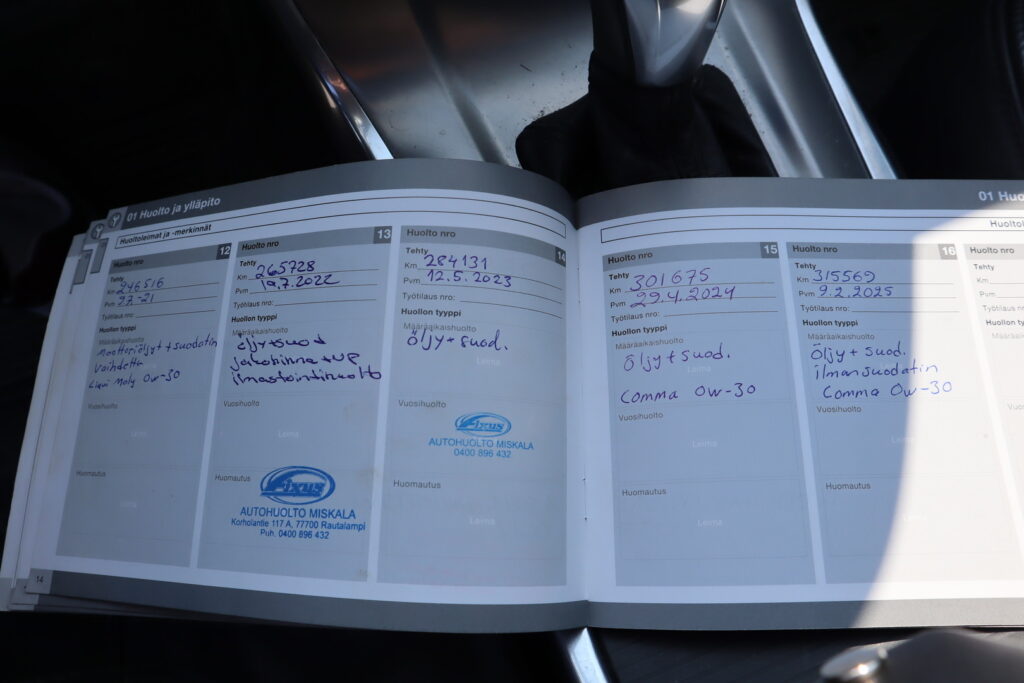 01 Huolto ja ylläpito
Huoltoleimat ja -merkinnät
Huolto nro 12
Tehty
Km 246516
Pvm
Työtilaus nro:
Huollon tyyppi
Määräaikaishuolto
Moottoriöljyt + suodatin
vaihdettu
Liqui Moly 0w-30
Vuosihuolto
Leima
Huomautus
Leima
14
Huolto nro 13
Tehty
Km 265728
Pvm 19.7.2022
Työtilaus nro:
Huollon tyyppi
Määräaikaishuolto
öljy+suod
ilmastointihuolto
Vuosihuolto
Leima
Huomautus
Fixus
AUTOHUOLTO MISKALA
Korholantie 117 A, 77700 Rautalampi
Puh. 0400 896 432
Huolto nro 14
Tehty
Km 284131
Pvm 12.5.2023
Työtilaus nro:
Huollon tyyppi
Määräaikaishuolto
Öljy + suod.
Leima
Vuosihuolto
Fixus
AUTOHUOLTO MISKALA
0400 896 432
Huomautus
Leima
01 Huo
Huoltol
Huolto nro 15
Tehty
Km 301675
Pvm 29.4.2024
Työtilaus nro:
Huollon tyyppi
Määräaikaishuolto
Öljy + suod.
Leima
Comma 0w-30
Vuosihuolto
Leima
Huomautus
Leima
Huolto nro 16
Tehty
Km 315569
Pvm 9.2.2025
Työtilaus nro:
Huollon tyyppi
Määräaikaishuolto
Öljy + suod.
ilmansuodatin
Comma 0w-30
Vuosihuolto
Leima
Huomautus
Leima
Huolto nro
Tehty
Km
Pvm
Työtilaus
Huollon